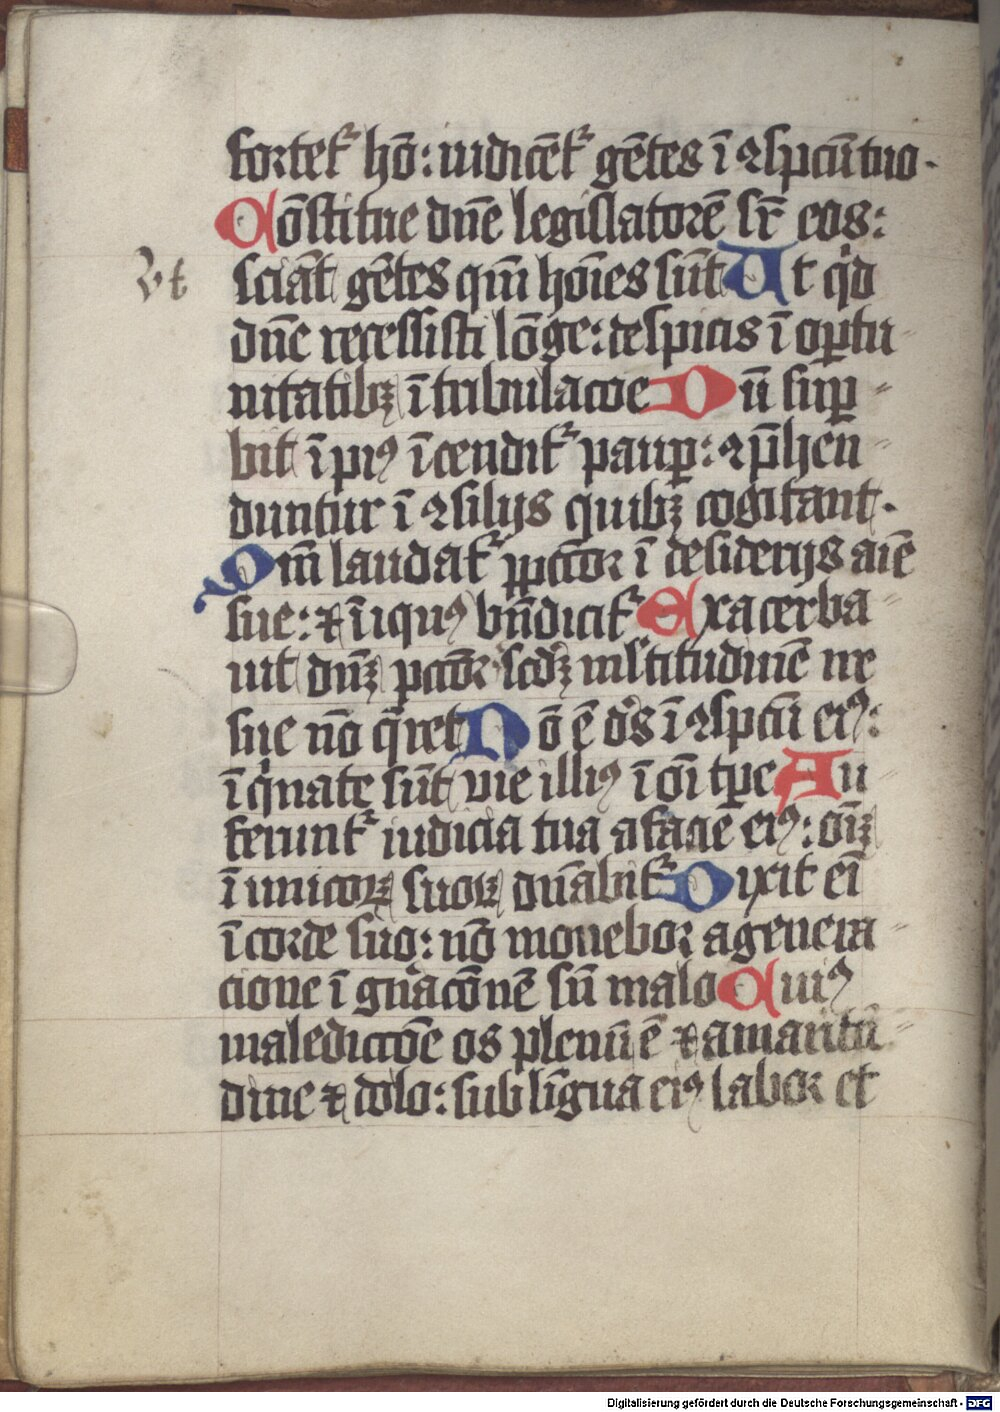 fortet᷑ hō: iudicēt᷑ gētes ī ꝯspc̄ū tuo.
Cōstitue dn̄e legislatorē sr̄ eos:
Vt
sciāt gētes qm̄ hoīes sūt Ut qͥd
dn̄e recessisti lōge: despicis ī oꝑtu
nitatibꝫ ī tribulac̄oe Dū suꝑ
bit īpiꝰ īcendit᷑ pauꝑ: ꝯp̄hen
duntur ī ꝯsilijs quibꝫ cogitant.
Qm̄ laudat᷑ pctōr ī desiderijs aīe
sue: ⁊ īiquꝰ bn̄dicit᷑ Exacerba
uit dn̄ꝫ pctōr scd̄ꝫ ml̓titudinē ire
sue nō q̄ret Nō ē ds̄ ī ꝯspc̄ū eiꝰ:
īqͥnate sūt vie illiꝰ ī oī tp̄e Au
ferunt᷑ iudicia tua a facie eiꝰ: oīꝫ
īimicoꝝ suoꝝ dn̄abit᷑ Dixit eī
ī corde suo: nō mouebor a genera
cione ī gn̄acōnē sn̄ malo Cuiꝰ
maledictōe os plenū ē ⁊ amaritu
dine ⁊ dolo: sub līgua eiꝰ labor et
Digitalisierung gefördert durch die Deutsche Forschungsgemeinschaft - DFG